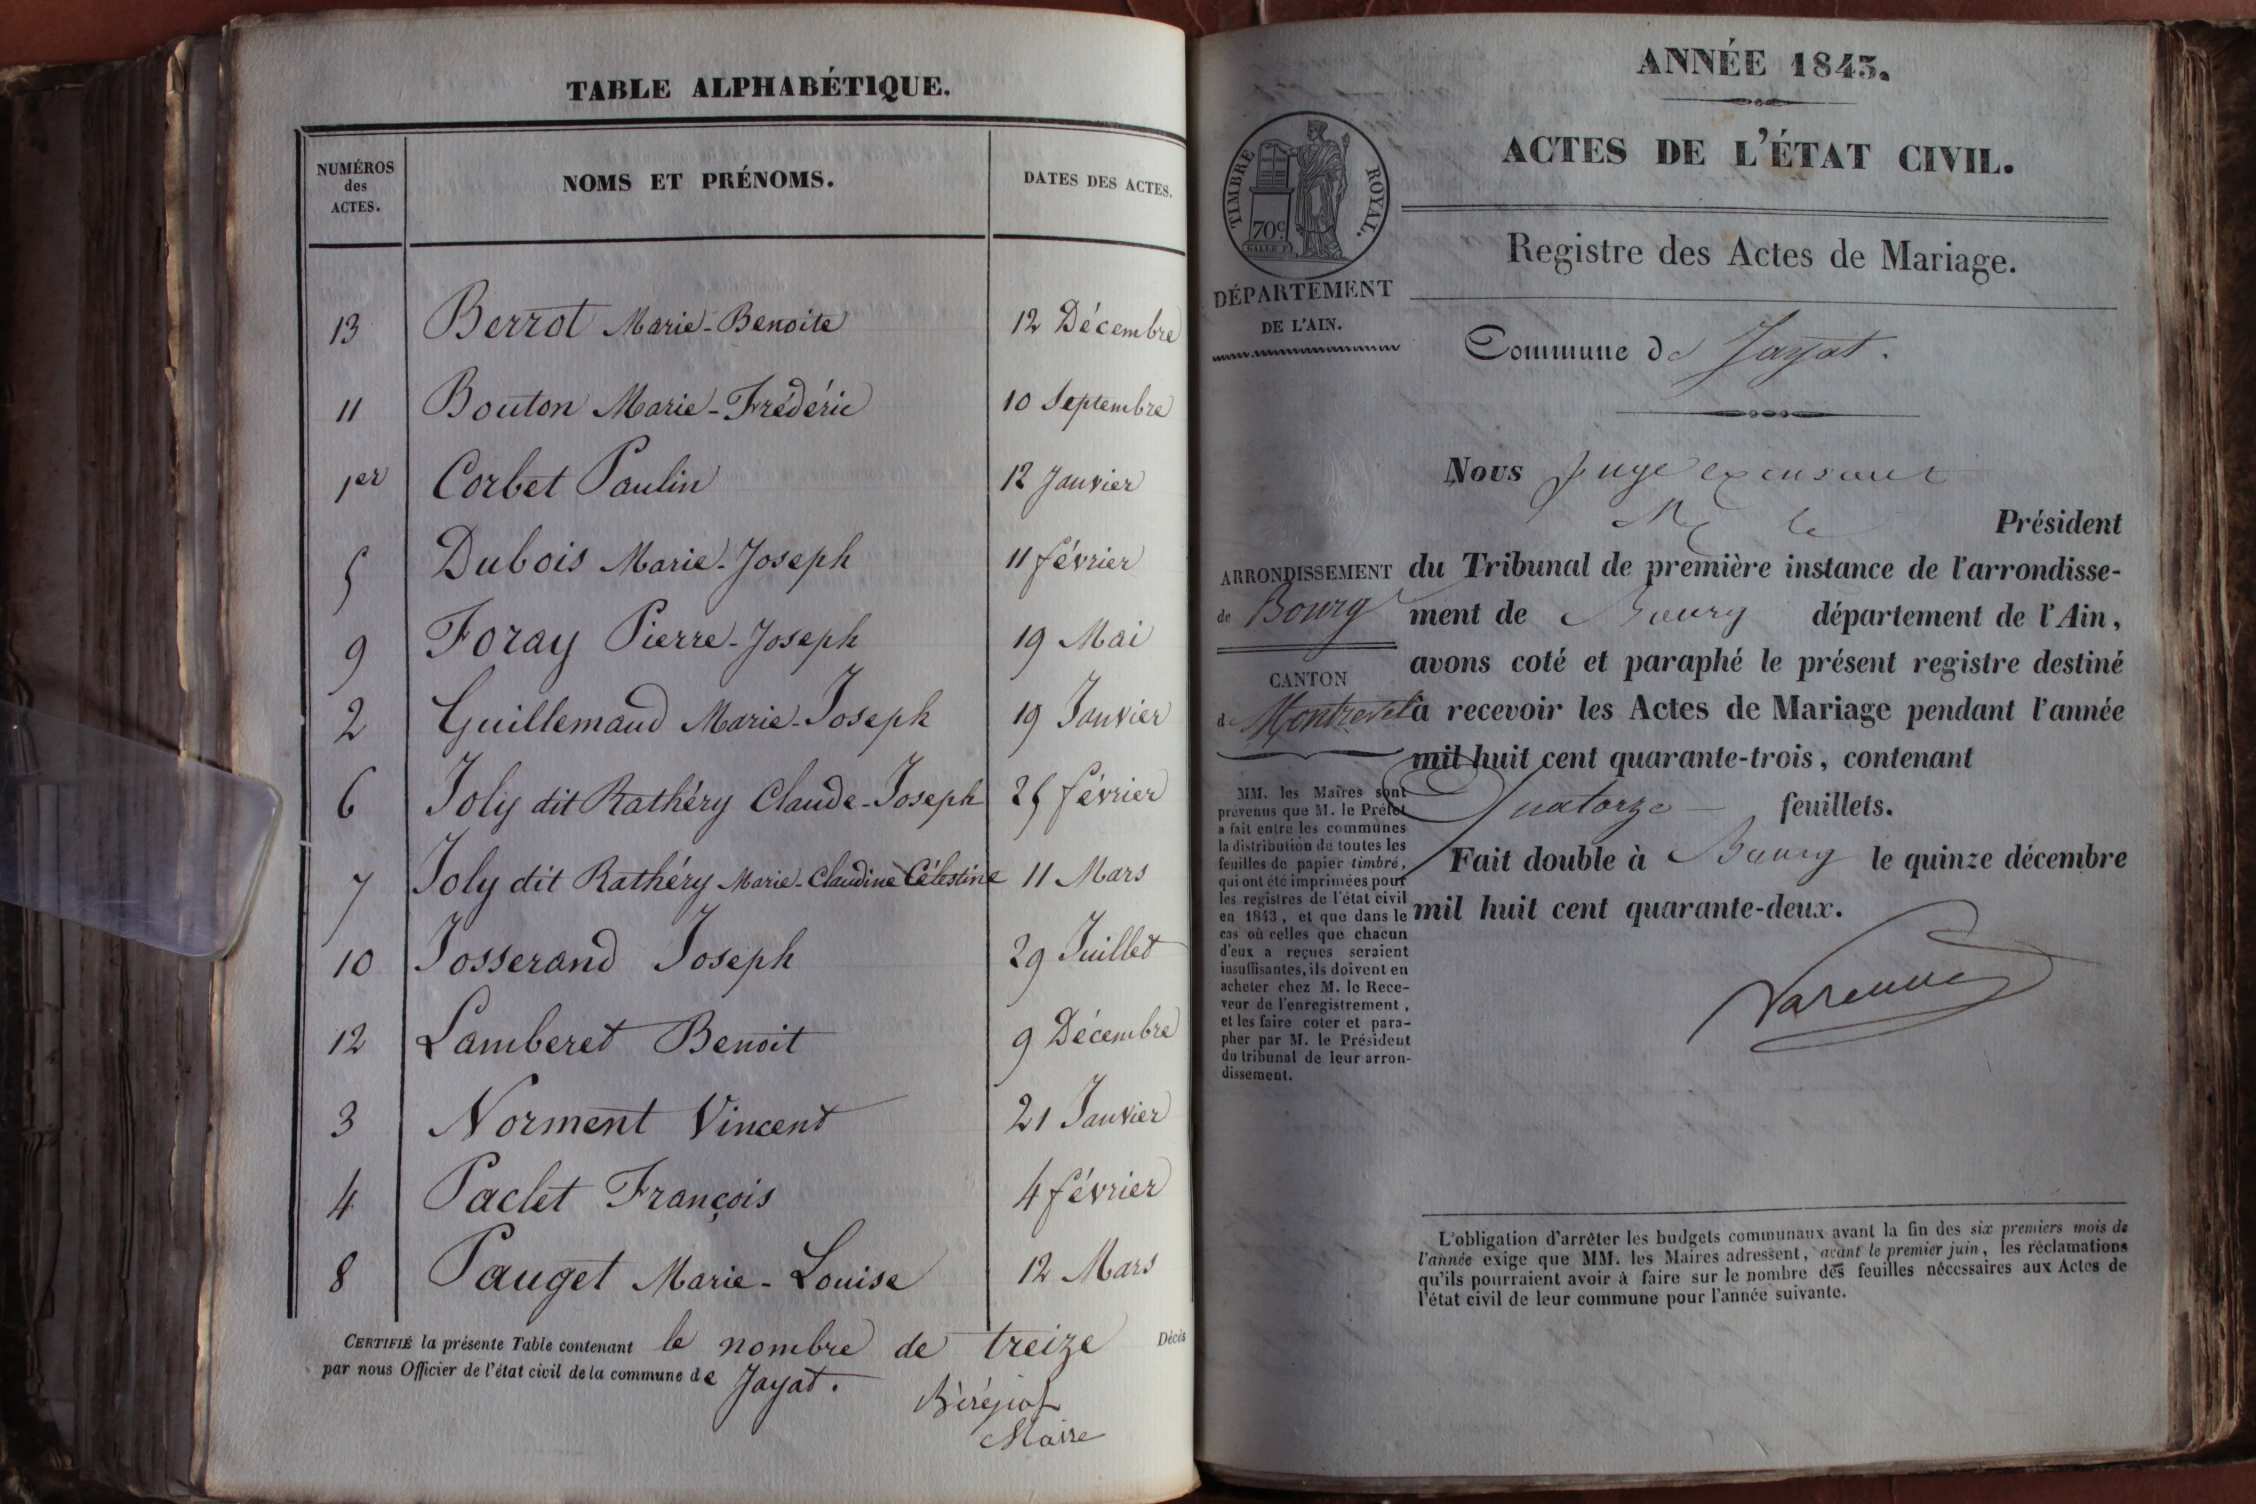 TABLE ALPHABÉTIQUE.
NUMÉROS des ACTES. NOMS ET PRÉNOMS. DATES DES ACTES.
13 Berrot Marie-Benoite 12 Décembre
11 Bouton Marie-Frédéric 10 Septembre
1er Corbet Paulin 12 Janvier
5 Dubois Marie-Joseph 11 février
9 Foray Pierre-Joseph 19 Mai
2 Guillemaud Marie-Joseph 19 Janvier
6 Joly dit Rathéry Claude-Joseph 25 février
7 Joly dit Rathéry Marie-Claudine Célestine 11 Mars
10 Josserand Joseph 29 Juillet
12 Lamberet Benoit 9 Décembre
3 Norment Vincent 21 Janvier
4 Paclet François 4 février
8 Pauget Marie-Louise 12 Mars
CERTIFIÉ la présente Table contenant le nombre de treize Décès
par nous Officier de l'état civil de la commune de Jayat.
Maire
ANNÉE 1843.
ACTES DE L'ÉTAT CIVIL.
TIMBRE ROYAL.
70c
Registre des Actes de Mariage.
DÉPARTEMENT
DE L'AIN.
Commune de Jayat.
Nous Juge exerçant
Mr le Président
ARRONDISSEMENT
de Bourg
CANTON
de Montrevel
du Tribunal de première instance de l'arrondisse-
ment de Bourg département de l'Ain,
avons coté et paraphé le présent registre destiné
à recevoir les Actes de Mariage pendant l'année
mil huit cent quarante-trois, contenant
Quatorze feuillets.
Fait double à Bourg le quinze décembre
mil huit cent quarante-deux.
Varenne
MM. les Maires sont
prévenus que M. le Préfet
a fait entre les communes
la distribution de toutes les
feuilles de papier timbré,
qui ont été imprimées pour
les registres de l'état civil
en 1843, et que dans le
cas où celles que chacun
d'eux a reçues seraient
insuffisantes, ils doivent en
acheter chez M. le Rece-
veur de l'enregistrement,
et les faire coter et para-
pher par M. le Président
du tribunal de leur arron-
dissement.
L'obligation d'arrêter les budgets communaux avant la fin des six premiers mois de
l'année exige que MM. les Maires adressent, avant le premier juin, les réclamations
qu'ils pourraient avoir à faire sur le nombre des feuilles nécessaires aux Actes de
l'état civil de leur commune pour l'année suivante.